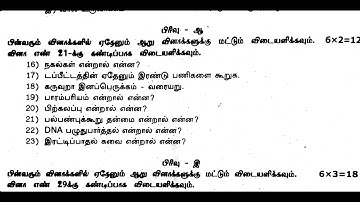 பிரிவு - ஆ
பின்வரும் வினாக்களில் ஏதேனும் ஆறு வினாக்களுக்கு மட்டும் விடையளிக்கவும். 6×2=12
வினா எண் 21-க்கு கண்டிப்பாக விடையளிக்கவும்.
16) நகல்கள் என்றால் என்ன?
17) டப்பீட்டத்தின் ஏதேனும் இரண்டு பணிகளை கூறுக.
18) கருவுறா இனப்பெருக்கம் - வரையறு.
19) பாரம்பரியம் என்றால் என்ன?
20) பிற்கலப்பு என்றால் என்ன?
21) பல்பண்புக்கூறு தன்மை என்றால் என்ன?
22) DNA பழுதுபார்த்தல் என்றால் என்ன?
23) இரட்டிப்பாதல் கவை என்றால் என்ன?
பிரிவு - இ
பின்வரும் வினாக்களில் ஏதேனும் ஆறு வினாக்களுக்கு மட்டும் விடையளிக்கவும். 6×3=18
வினா எண் 29க்கு கண்டிப்பாக விடையளிக்கவும்.